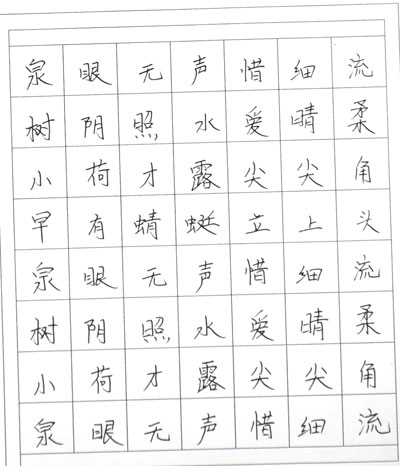 泉眼无声惜细流
树阴照水爱晴柔
小荷才露尖尖角
早有蜻蜓立上头
泉眼无声惜细流
树阴照水爱晴柔
小荷才露尖尖角
泉眼无声惜细流